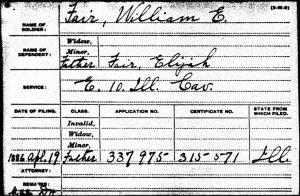 (3-216)
NAME OF SOLDIER: Fair, William E.
NAME OF DEPENDENT: Widow,
Minor,
Father Fair, Elijah
SERVICE: E. 10. Ill. Cav.
DATE OF FILING. CLASS. APPLICATION NO. CERTIFICATE NO. STATE FROM WHICH FILED.
Invalid,
Widow,
Minor,
1886 Apl. 19 Father 337975 315571 Ill.
ATTORNEY:
REMARKS: